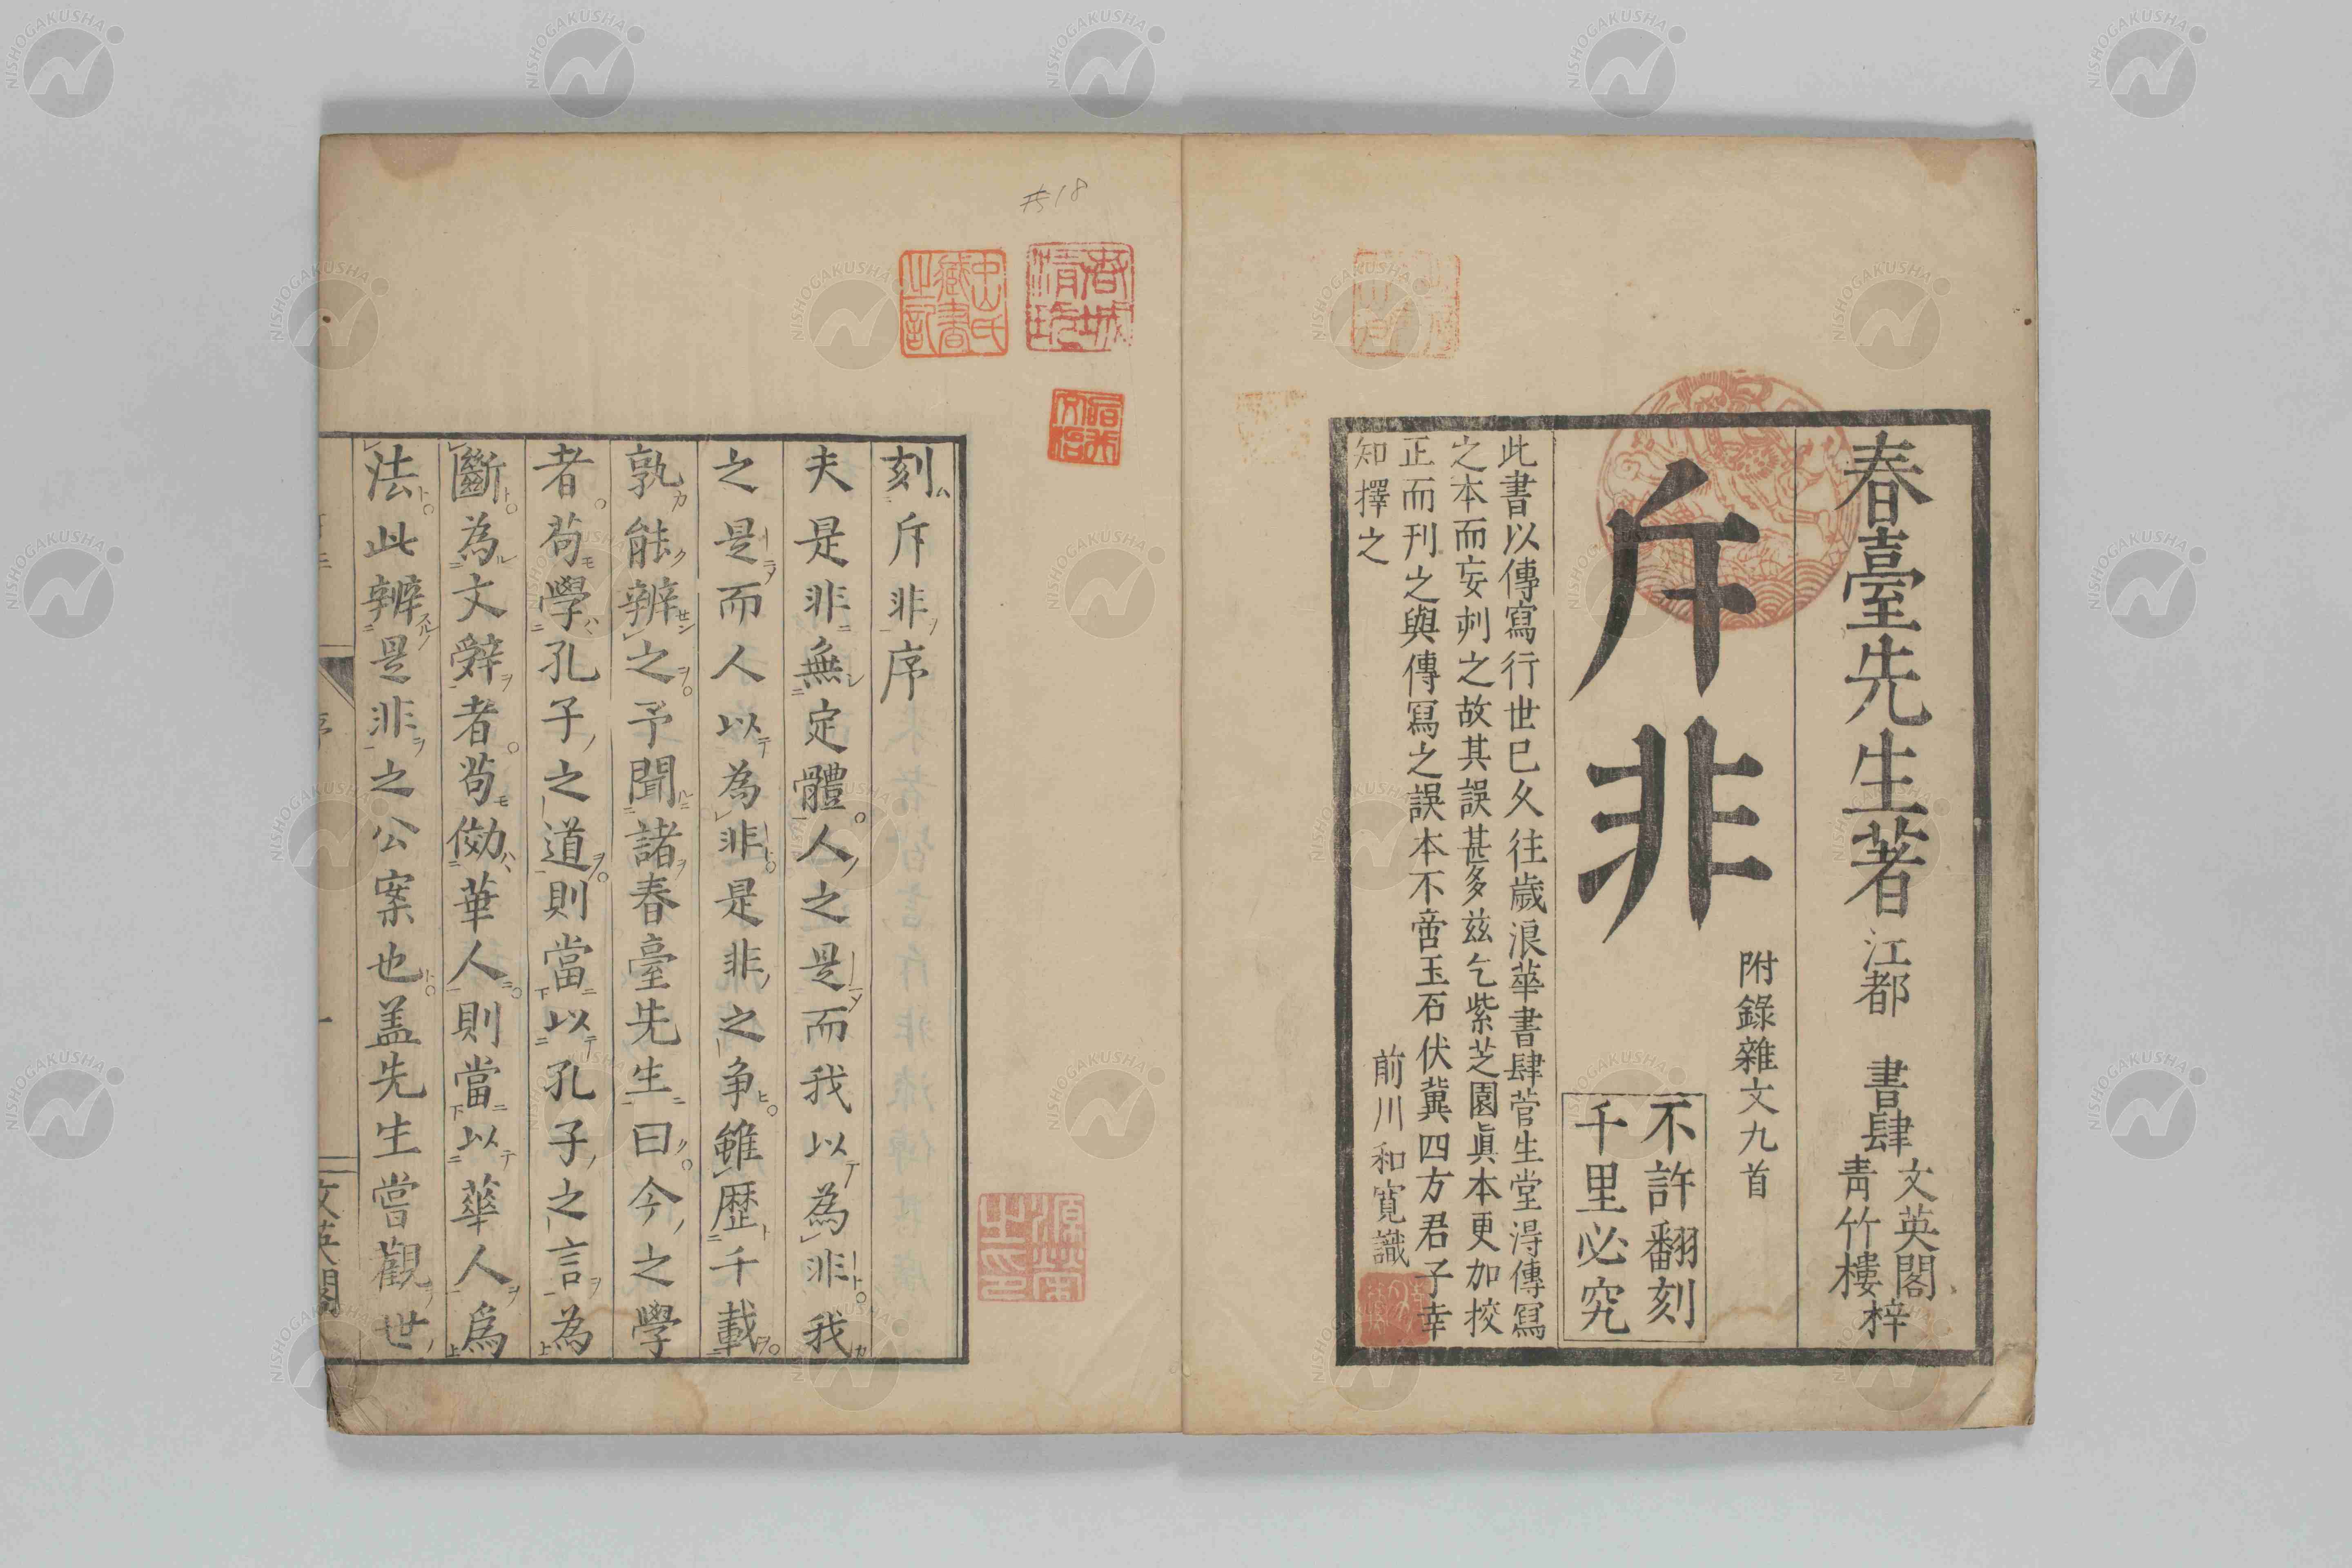 春臺先生著 江都 書肆 文英閣 青竹樓 梓
斥非
附錄雜文九首
不許翻刻
千里必究
此書以傳寫行世已久往歲浪華書肆菅生堂得傳寫
之本而妄刿之故其誤甚多茲乞紫芝園眞本更加挍
正而刊之與傳冩之誤本不啻玉石伏冀四方君子幸
知擇之
前川和寬識
#18
刻斥非序
夫是非無定體人之是而我以為非我
之是而人以為非是非之争雖歴千載
孰能辨之予聞諸春臺先生曰今之學
者苟學孔子之道則當以孔子之言為
斷為文辭者苟傚華人則當以華人爲
法此辨是非之公案也盖先生嘗觀世
序
文英閣
NISHOGAKUSHA